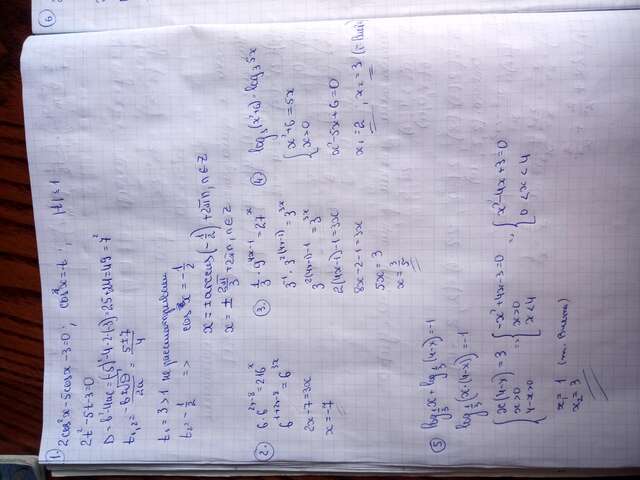 1. 2cos²x-5cosx-3=0; cos x=t; |t|≤1
2t²-5t-3=0
D=b²-4ac=(-5)²-4·2·(-3)=25+24=49=7²
t₁,₂ = (-b±√D)/2a = (5±7)/4
t₁=3>1 не рассматриваем
t₂=-1/2 => cos x=-1/2
x=±arccos(-1/2)+2πn, n∈Z
x=±2π/3+2πn, n∈Z
2. 6·6^(2x-8)=216^x
6^(1+2x-8)=6^(3x)
2x-7=3x
x=-7
3. 1/3·9^(4x-1)=27^x
3^(-1)·3^(2(4x-1))=3^(3x)
3^(2(4x-1)-1)=3^(3x)
2(4x-1)-1=3x
8x-2-1=3x
5x=3
x=3/5
4. log₃(x²+6)=log₃5x
{x²+6=5x
x>0
x²-5x+6=0
x₁=2, x₂=3 (т. Виета)
5 log_(1/3) x+log_(1/3)(4-x)=-1
log_(1/3)(x(4-x))=-1
{x(4-x)=3 {-x²+4x-3=0 {x²-4x+3=0
x>0 => x>0 => 0<x<4
4-x>0 x<4
x₁=1 (т. Виета)
x₂=3
6